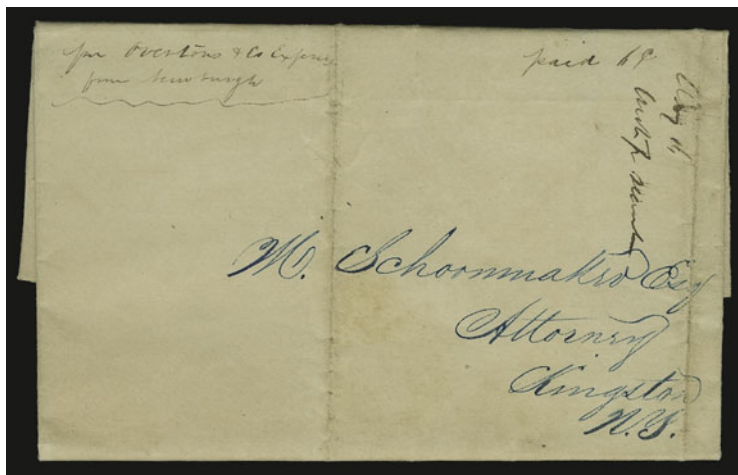 per Overtons & Co Express
from Newburgh
paid 6¢
M. Schoonmaker Esq
Attorney
Kingston
N.Y.